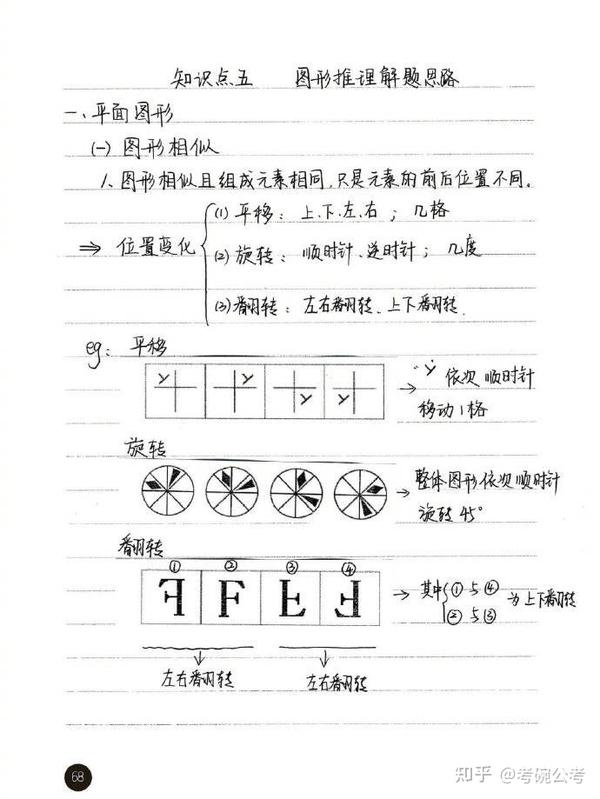 知识点五 图形推理解题思路
一、平面图形
(一) 图形相似
1、图形相似且组成元素相同,只是元素的前后位置不同。
⇒ 位置变化
(1) 平移: 上、下、左、右 ; 几格
(2) 旋转: 顺时针、逆时针; 几度
(3) 翻转: 左右翻转、上下翻转.
eg: 平移
"y" 依次顺时针
移动1格
旋转
→ 整体图形依次顺时针
旋转45°
翻转
① ② ③ ④
F F F F
→ 其中 ①与④ 为上下翻转
②与③
左右翻转 左右翻转
68
知乎 @考碗公考